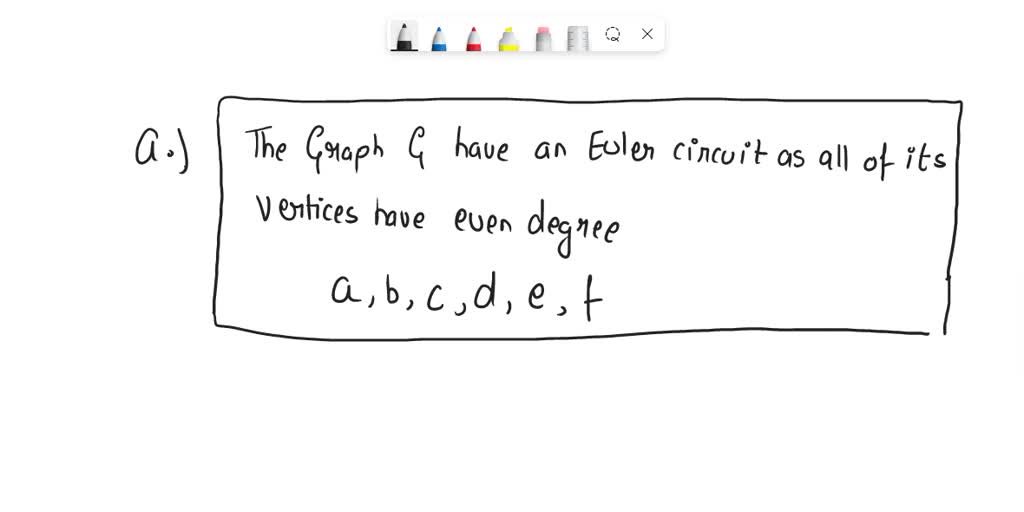 a.) The Graph G have an Euler circuit as all of its
vertices have even degree
a, b, c, d, e, f